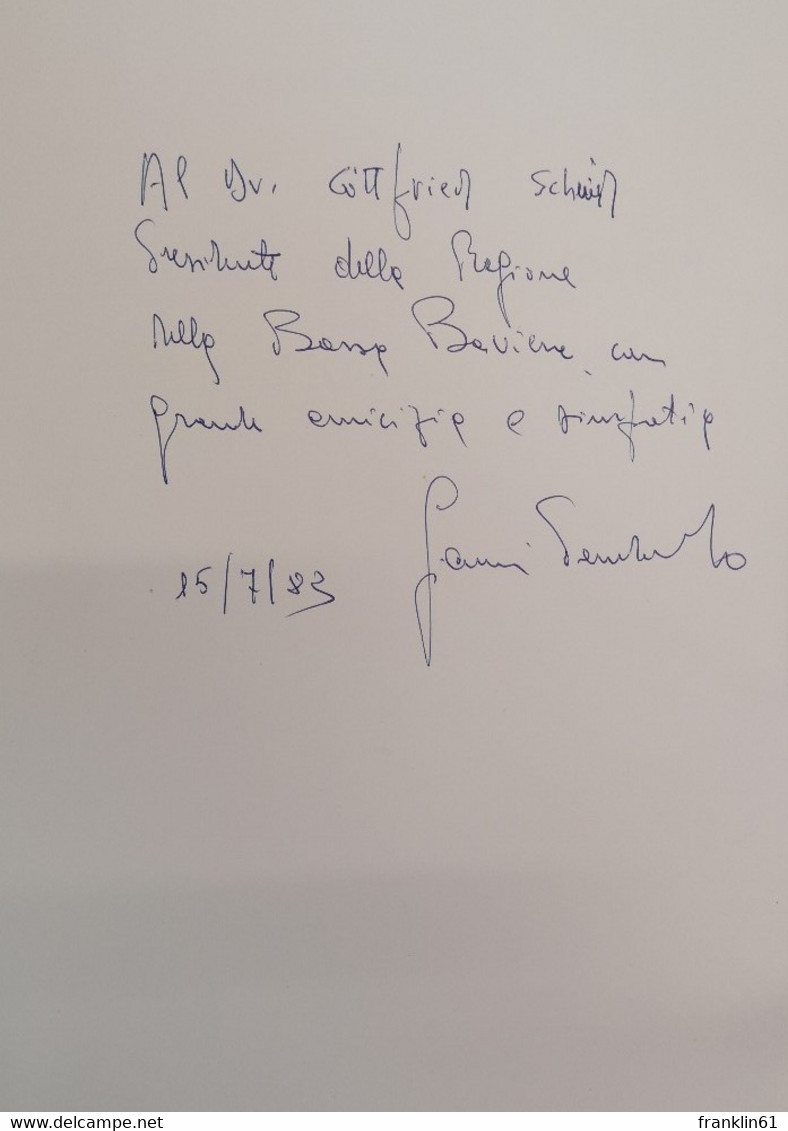 Al Dr. Gottfried Schmid
Presidente della Regione
della Bassa Baviera con
grande amicizia e simpatia
15/7/83 Gianni
www.delcampe.net
franklin61